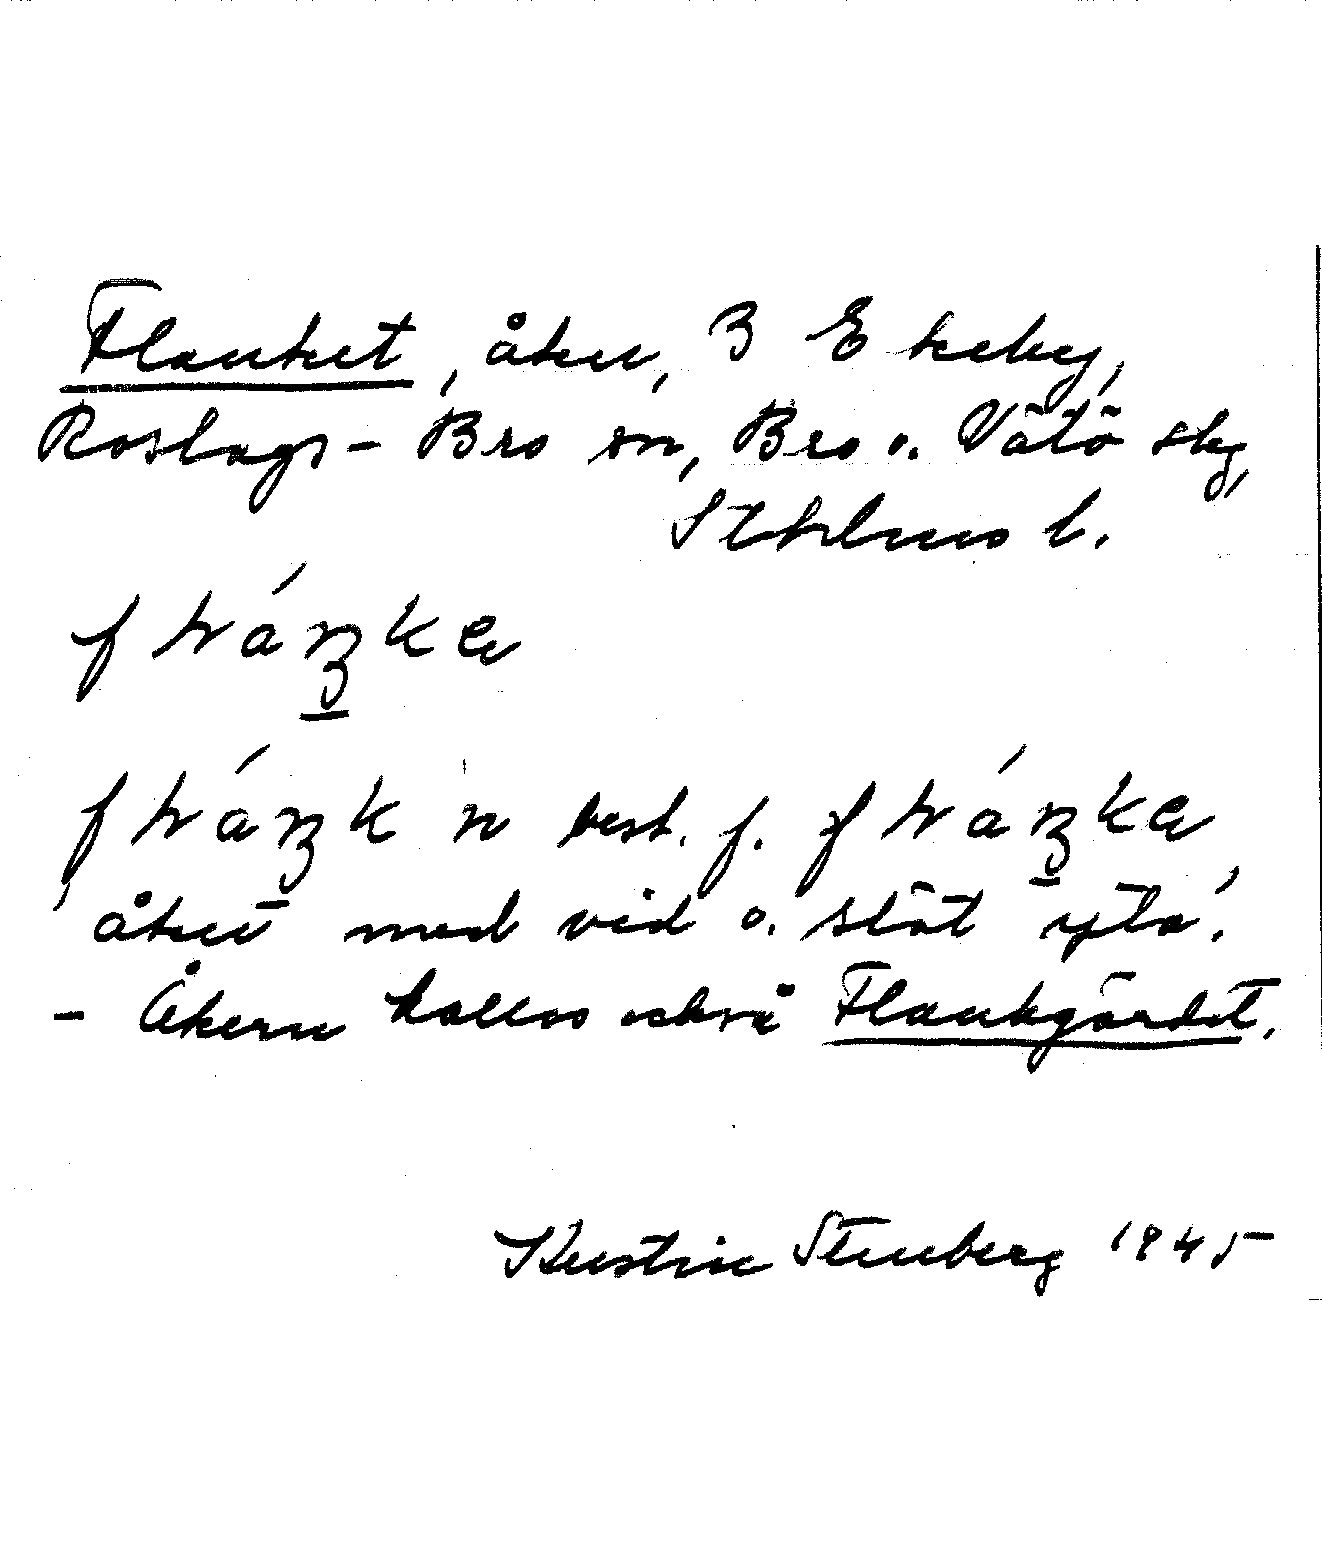 Flanket, åker, 3 Ekeby,
Roslags-Bro sn, Bro o. Vätö skg,
Sthlms l.
best. f.
'åker med vid o. slät yta'.
- Åkern kallas också Flankgärdet.
Kerstin Stenberg 1945